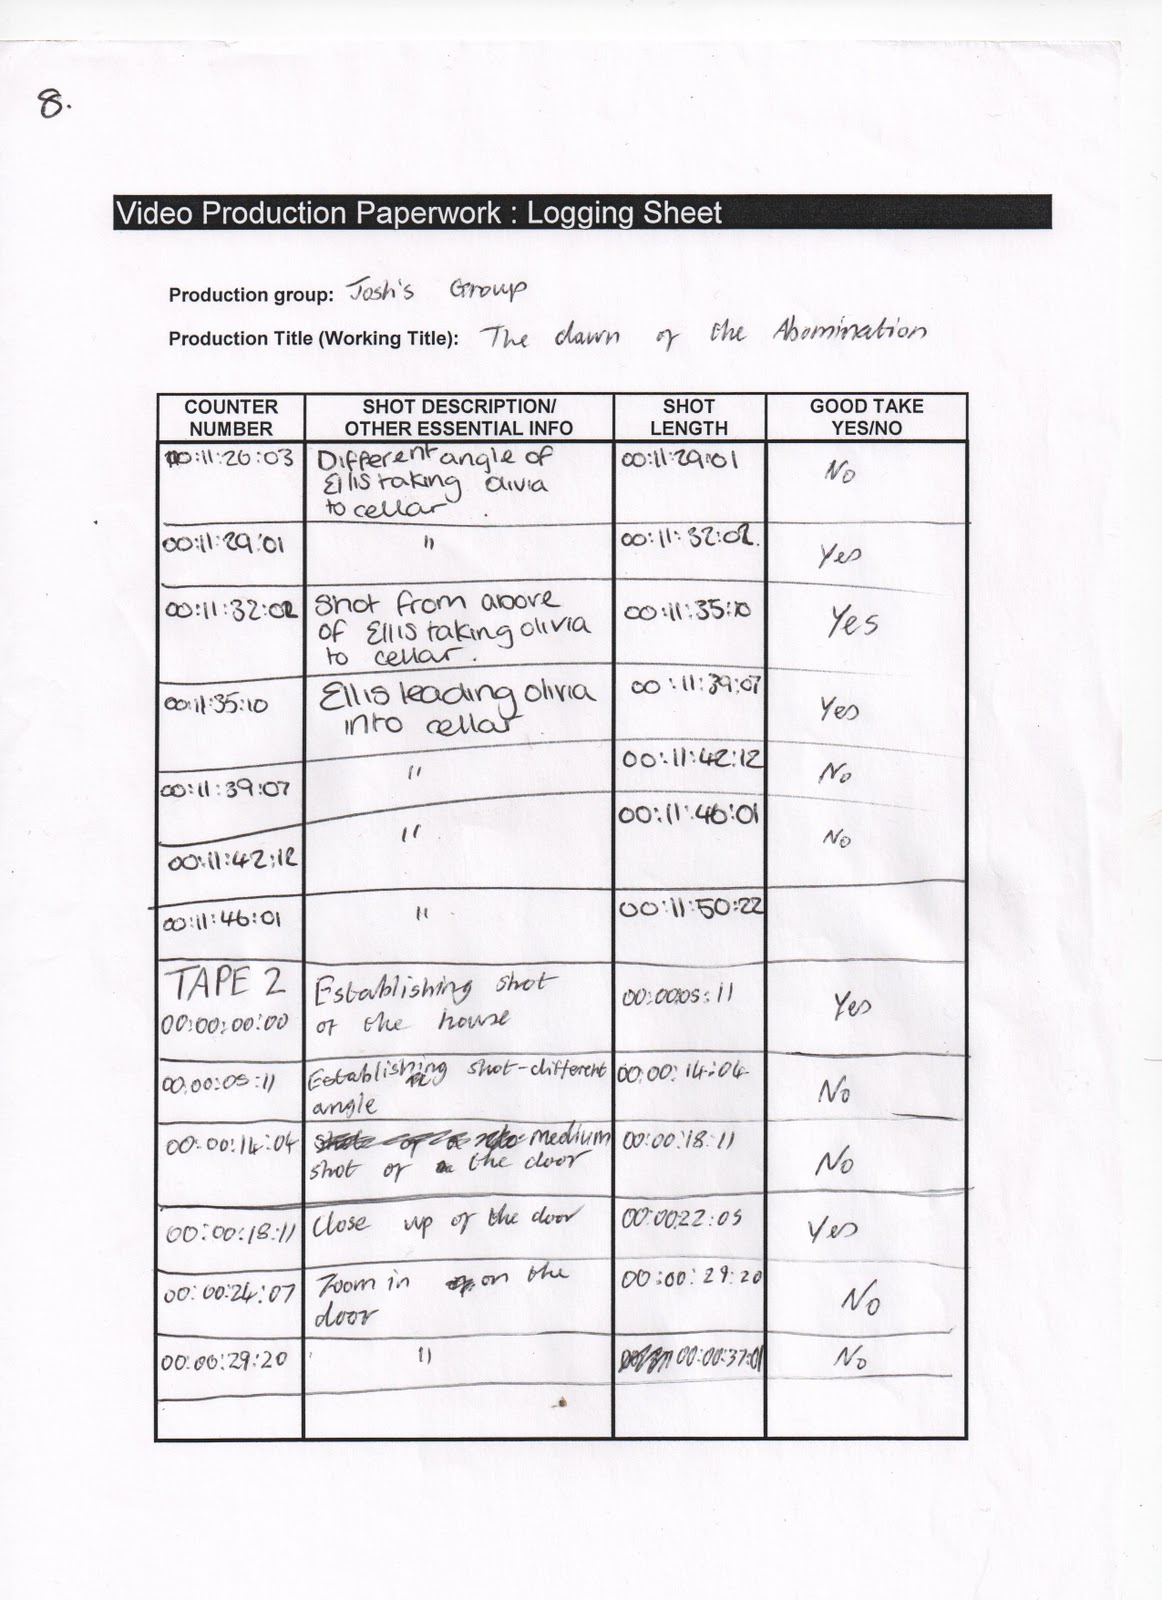 8.
Video Production Paperwork : Logging Sheet
Production group: Josh's Group
Production Title (Working Title): The dawn of the Abomination
COUNTER NUMBER SHOT DESCRIPTION/ OTHER ESSENTIAL INFO SHOT LENGTH GOOD TAKE YES/NO
00:11:26:03 Different angle of 00:11:29:01 No
Ellis taking olivia
to cellar.
00:11:29:01 " 00:11:32:02. Yes
00:11:32:02 Shot from above 00:11:35:10 Yes
of Ellis taking olivia
to cellar.
00:11:35:10 Ellis leading olivia 00:11:39:07 Yes
into cellar
00:11:39:07 " 00:11:42:12 No
00:11:42:12 " 00:11:46:01 No
00:11:46:01 " 00:11:50:22
TAPE 2 Establishing shot 00:00:05:11 Yes
00:00:00:00 of the house
00:00:05:11 Establishing shot-different 00:00:14:04 No
angle
00:00:14:04 medium 00:00:18:11 No
shot of the door
00:00:18:11 Close up of the door 00:00:22:05 Yes
00:00:24:07 Zoom in on the 00:00:29:20 No
door
00:00:29:20 " 00:00:37:01 No